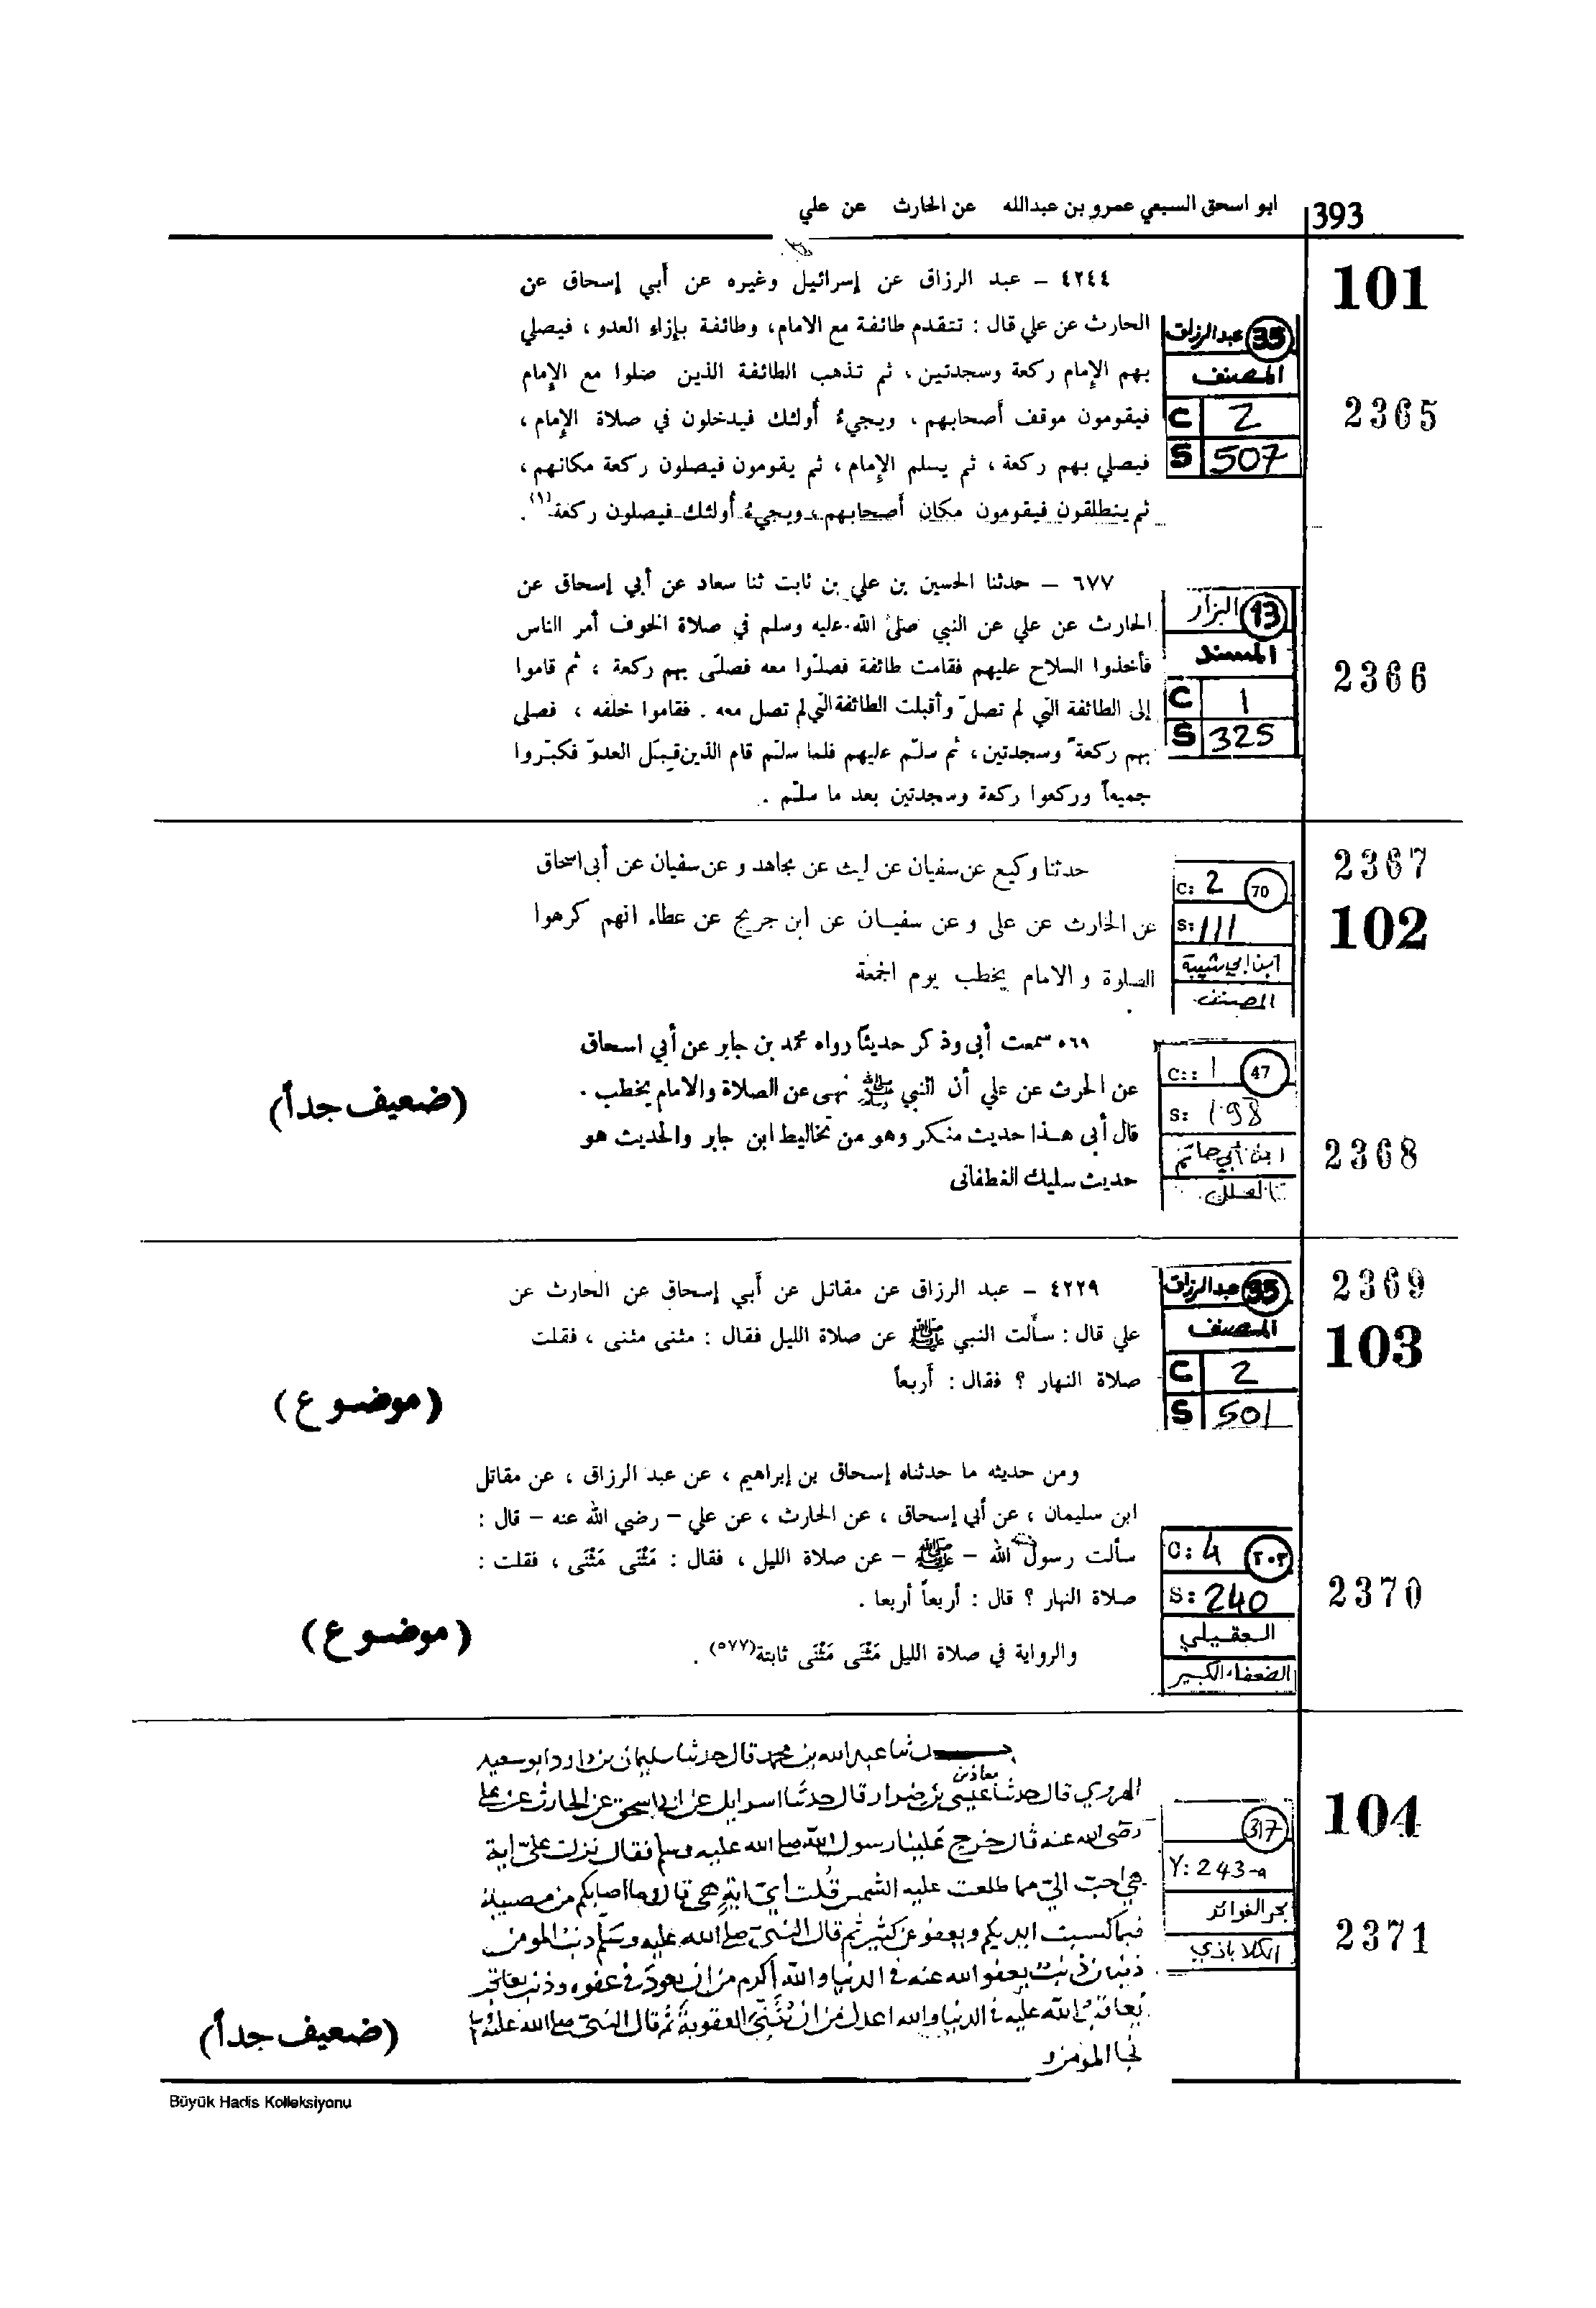 ابو اسحق السبعي عمرو بن عبدالله عن الحارث عن علي
393
101
٤٢٤٤ – عبد الرزاق عن إسرائيل وغيره عن أبي إسحاق عن
الحارث عن علي قال : تتقدم طائفة مع الامام، وطائفة بإزاء العدو ، فيصلي
بهم الإمام ركعة وسجدتين ، ثم تذهب الطائفة الذين صلوا مع الإمام
فيقومون موقف أصحابهم ، ويجيءُ أولئك فيدخلون في صلاة الإمام ،
فيصلي بهم ركعة ، ثم يسلم الإمام ، ثم يقومون فيصلون ركعة مكانهم ،
ثم ينطلقون فيقومون مكان أصحابهم ، ويجيءُ أولئك فيصلون ركعة(١) .
عبدالرزاق 35
المصنف
C 2
S 507
2365
٦٧٧ – حدثنا الحسين بن علي بن ثابت ثنا سعاد عن أبي إسحاق عن
الحارث عن علي عن النبي صلى الله عليه وسلم في صلاة الخوف أمر الناس
فأخذوا السلاح عليهم فقامت طائفة فصلّوا معه فصلّى بهم ركعة ، ثم قاموا
إلى الطائفة التي لم تصلّ وأقبلت الطائفة التي لم تصل معه . فقاموا خلفه ، فصلى
بهم ركعة وسجدتين ، ثم سلّم عليهم فلما سلّم قام الذين قِبَل العدوّ فكبّروا
جميعاً وركعوا ركعة وسجدتين بعد ما سلّم .
البزار 13
المسند
C 1
S 325
2366
2367
102
حدثنا وكيع عن سفيان عن ليث عن مجاهد و عن سفيان عن أبى اسحاق
عن الحارث عن على و عن سفيـان عن ابن جريج عن عطاء انهم كرهوا
الصلوة و الامام يخطب يوم الجمعة
C: 2 70
S: 111
ابن ابي شيبة
المصنف
٥٦٩ سمعت أبى وذكر حديثاً رواه محمد بن جابر عن أبي اسحاق
عن الحرث عن علي أن النبي ﷺ نهى عن الصلاة والامام يخطب .
قال أبى هـذا حديث منكر وهو من تخاليط ابن جابر والحديث هو
حديث سليك الغطفانى
(ضعيف جداً)
C: 1 47
S: 198
ابن أبي حاتم
العلل
2368
2369
103
٤٢٢٩ – عبد الرزاق عن مقاتل عن أبي إسحاق عن الحارث عن
علي قال : سألت النبي ﷺ عن صلاة الليل فقال : مثنى مثنى ، فقلت
صلاة النهار ؟ فقال : أربعاً
(موضوع)
عبدالرزاق 35
المصنف
C 2
S 501
ومن حديثه ما حدثناه إسحاق بن إبراهيم ، عن عبد الرزاق ، عن مقاتل
ابن سليمان ، عن أبي إسحاق ، عن الحارث ، عن علي – رضي الله عنه – قال :
سألت رسول الله – ﷺ – عن صلاة الليل ، فقال : مَثْنَى مَثْنَى ، فقلت :
صلاة النهار ؟ قال : أربعاً أربعا .
والرواية في صلاة الليل مَثْنَى مَثْنَى ثابتة(٥٧٧) .
(موضوع)
C: 4 ٢٠٢
S: 240
العقيلي
الضعفاء الكبير
2370
حدثنا عبد الله بن محمد قال حدثنا سليمان بن داود ابو سعيد
الهروي قال حدثنا عيسى بن ضرار قال حدثنا اسرايل عن ابي اسحق عن الحارث عن علي
معاذ بن
رضى الله عنه قال خرج علينا رسول الله صلى الله عليه وسلم فقال نزلت علىّ اية
هي احب اليّ مما طلعت عليه الشمس قلت أيّ ايةٍ هي قال وما اصابكم من مصيبة
فبما كسبت ايديكم ويعفو عن كثير ثم قال النبي صلى الله عليه وسلم ذنب المومن
ذنبان ذنبٌ يعفو الله عنه في الدنيا والله أكرم من ان يعود في عفوه وذنب يعاقب
يعاقبُ الله عليه في الدنيا والله اعدل من ان يُثَنِّيَ العقوبة ثم قال النبي صلى الله عليه
نجا المومن
(ضعيف جداً)
104
317
Y: 243-a
بحر الفوائد
الكلاباذي
2371
Büyük Hadis Kolleksiyonu